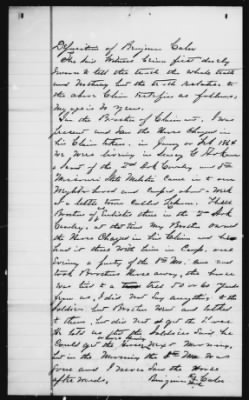 Deposition of Benjamin Cates
The Said Witness being first duly
Sworn to tell the truth the whole truth
and Nothing but the truth relative to
the above Claim testifies as follows.
My age is 30 years.
I am the Brother of Claimant. I was
present and Saw the Horse Charged in
his Claim taken. in January or Feb 1864
We were living in Searcy C Ark
a part of the 2nd Ark Cavalry and 8th
Missouri State Militia Came in to our
Neighborhood and Camped about a Week
in a little town Called
Brother Enlisted then in the 2nd Ark
Cavalry, at that time My Brother owned
the Horse Charged in his Claim and
had it there With him in Camp. one
Evening a party of the 8th Mo. Came and
took Brothers Horse away, the horse
was tied to a tree 50 or 60 yards
from us, I did not Say anything to the
Soldiers but Brother Went and talked
to them, but did not get the Horse
He told us that the Soldiers Said he
Could get the Horse Next Morning,
but in the Morning the 8th Mo. Was
gone and I never Saw the Horse
afterwards.
Benjamin Cates